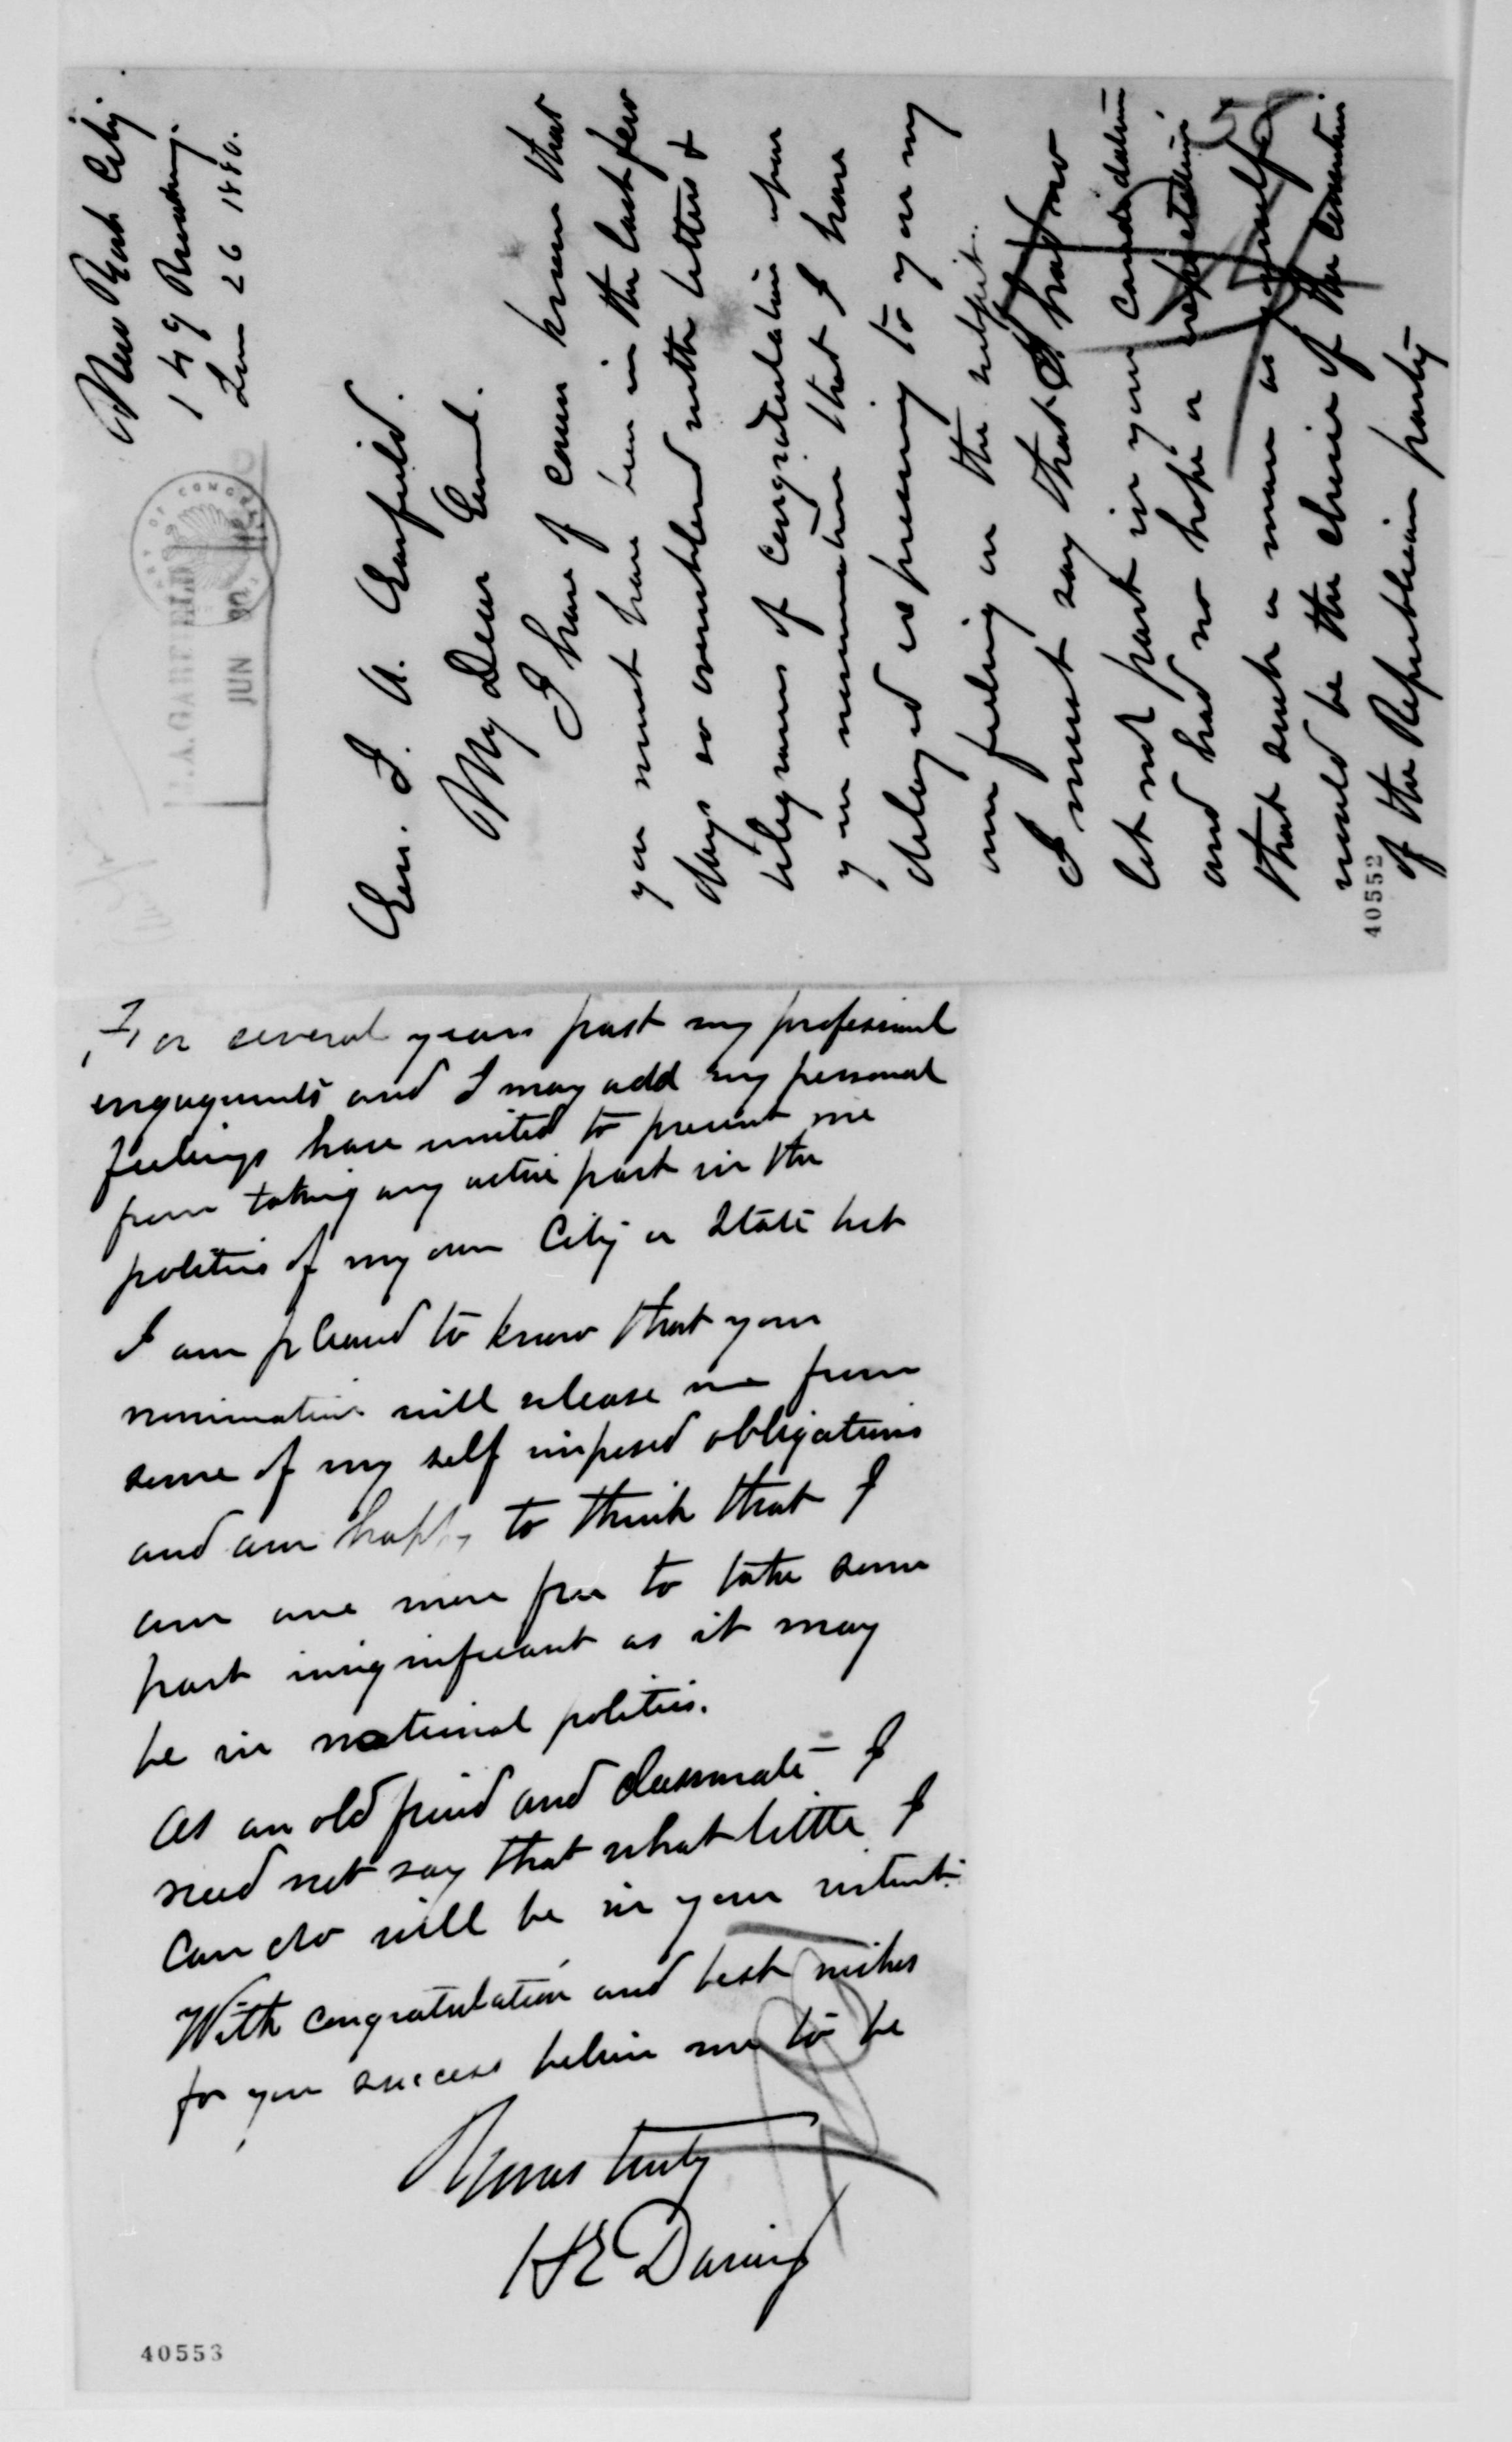 New York City
149 Broadway.
Jun 26 1880.
LIBRARY OF CONGRESS
J. A. GARFIELD
JUN
Gen. J. A. Garfield.
My Dear Genl.
I have of course known that
you must have been in the last few
days so overwhelmed with letters &
telegrams of congratulation upon
your nomination that I have
delayed expressing to you my
own feeling on the subject.
I must say that I had no
lot nor part in your candidature
and had no hope or expectation
that such a man as yourself
would be the choice of the convention
of the Republican party
40552
For several years past my professional
engagements and I may add my personal
feelings have united to prevent me
from taking any active part in the
politics of my own City or State but
I am pleased to know that your
nomination will release me from
some of my self imposed obligations
and am happy to think that I
am once more free to take some
part insignificant as it may
be in national politics.
As an old friend and classmate I
need not say that what little I
can do will be in your interest.
With congratulation and best wishes
for your success believe me to be
Yours truly
H E
40553